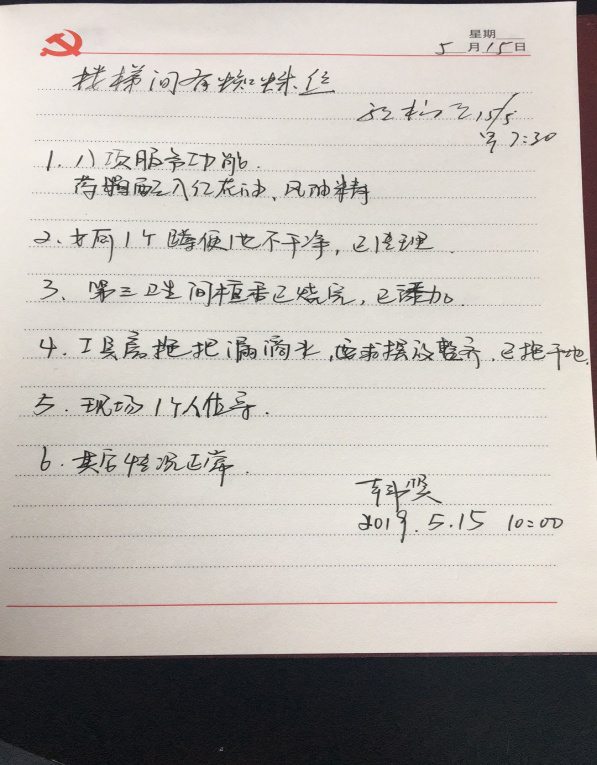 星期
5月15日
楼梯间有蜘蛛丝
15/5
早7:30
1. 八项服务功能.
药箱配入红花油、风油精
2、女厕1个蹲便池不干净,已清理.
3、第三卫生间檀香已烧完,已添加。
4. 工具房拖把漏滴水,要求摆放整齐.已拖干地.
5. 现场1个人值守.
6. 其后情况正常.
2019.5.15 10:00